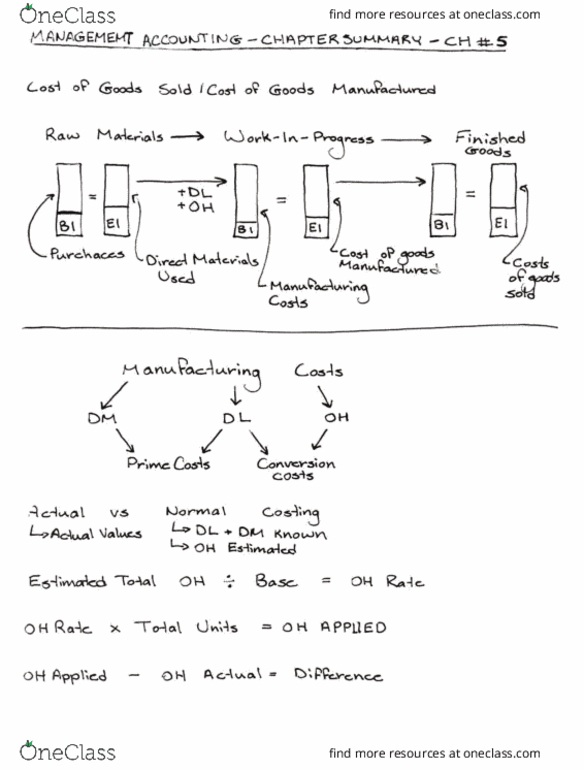 OneClass
find more resources at oneclass.com
MANAGEMENT ACCOUNTING - CHAPTER SUMMARY - CH #5
Cost of Goods Sold / Cost of Goods Manufactured
Raw Materials → Work-In-Progress → Finished Goods
BI = EI +DL +OH BI = EI BI = EI
Purchaces
Direct Materials Used
Manufacturing Costs
Cost of goods Manufactured
Costs of goods sold
Manufacturing Costs
DM DL OH
Prime Costs Conversion costs
Actual vs Normal Costing
↳ Actual Values ↳ DL + DM Known
↳ OH Estimated
Estimated Total OH ÷ Base = OH Rate
OH Rate x Total Units = OH APPLIED
OH Applied - OH Actual = Difference
OneClass
find more resources at oneclass.com